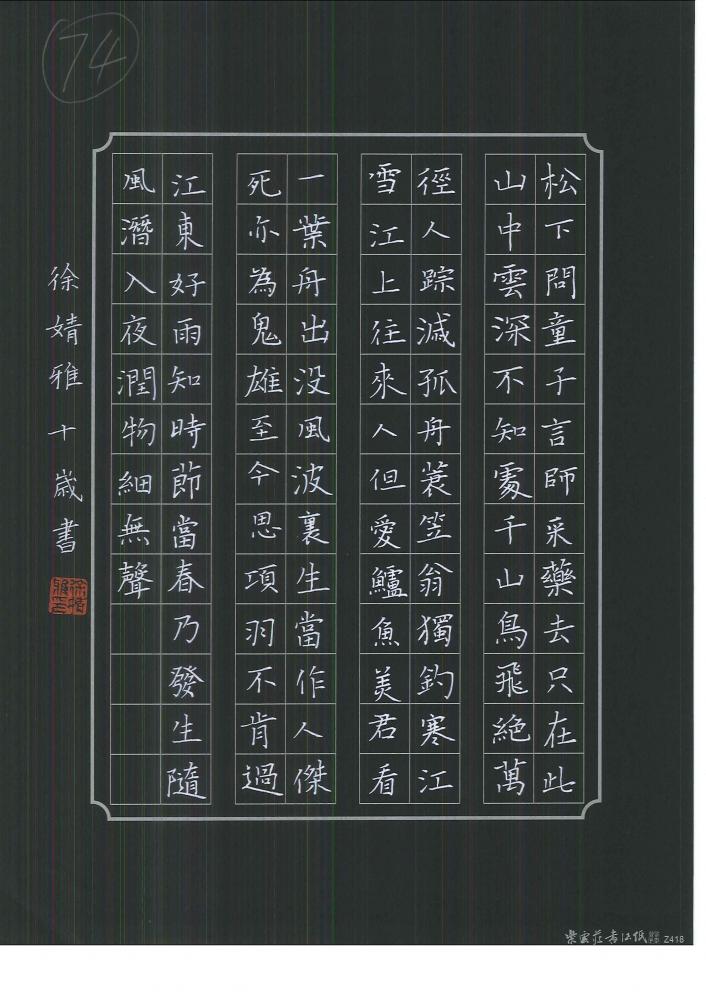 74
松下問童子言師采藥去只在此
山中雲深不知處千山鳥飛絕萬
徑人踪滅孤舟蓑笠翁獨釣寒江
雪江上往來人但愛鱸魚美君看
一葉舟出没風波裏生當作人傑
死亦為鬼雄至今思項羽不肯過
江東好雨知時節當春乃發生隨
風潛入夜潤物細無聲
徐婧雅十歲書
紫雲莊書法紙
Z418